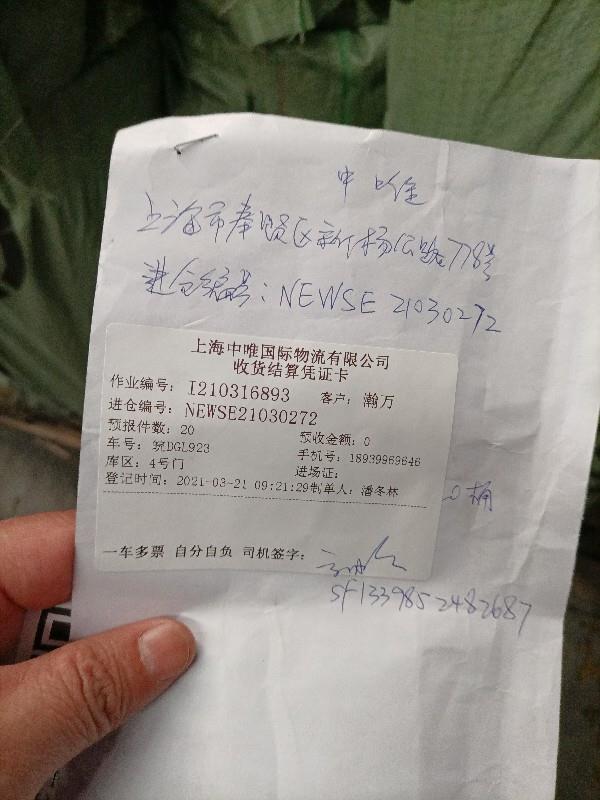 中唯
上海市奉贤区新杨公路778号
进仓编号：NEWSE 21030272
上海中唯国际物流有限公司
收货结算凭证卡
作业编号： I210316893 客户： 瀚万
进仓编号： NEWSE21030272
预报件数： 20 预收金额： 0
车号： 皖DGL923 手机号： 18939969646
库区： 4号门 进场证：
登记时间： 2021-03-21 09:21:29 制单人： 潘冬林
桶
一车多票 自分自负 司机签字：
SF1339852482687